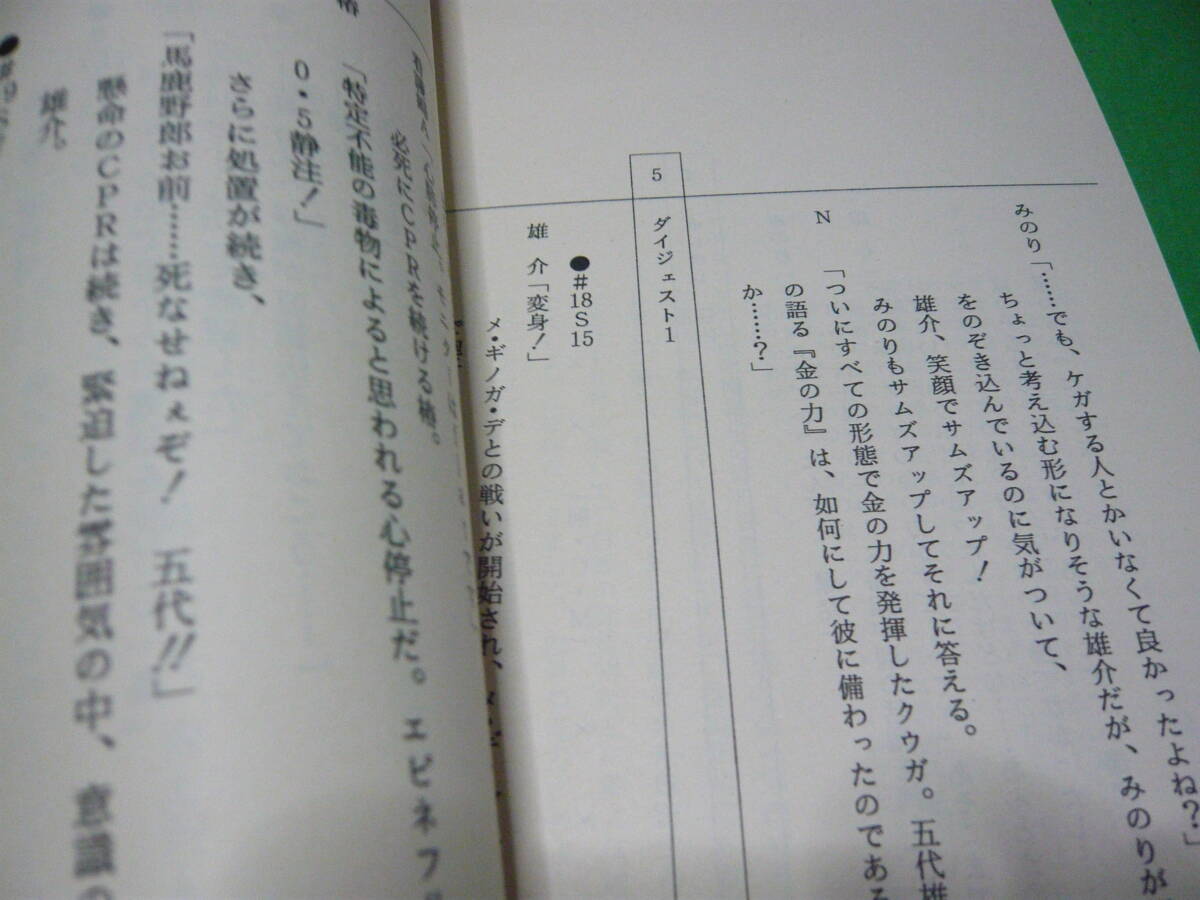 みのり「……でも、ケガする人とかいなくて良かったよね?」
ちょっと考え込む形になりそうな雄介だが、みのりが
をのぞき込んでいるのに気がついて、
雄介、笑顔でサムズアップ!
みのりもサムズアップしてそれに答える。
N 「ついにすべての形態で金の力を発揮したクウガ。五代雄
の語る『金の力』は、如何にして彼に備わったのである
か……?」
5 ダイジェスト1
●#18S15
雄介「変身!」
メ・ギノガ・デとの戦いが開始され、
必死にCPRを続ける椿。
椿 「特定不能の毒物によると思われる心停止だ。エピネフ
0・5静注!」
さらに処置が続き、
「馬鹿野郎お前……死なせねぇぞ! 五代!!」
懸命のCPRは続き、緊迫した雰囲気の中、意識の
雄介。